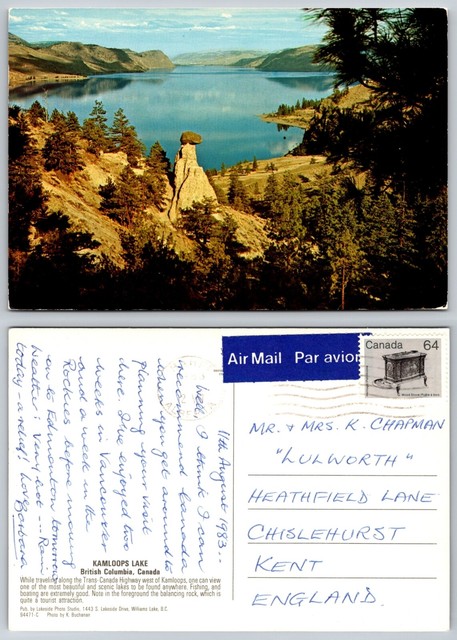 Air Mail Par avion
Canada 64
11th August 1983 --
Well, I think I can
recommend Canada
when you get around to
planning your visit
here. I've enjoyed two
weeks in Vancouver
and a week in the
Rockies before moving
on to Edmonton tomorrow
Weather: Very hot --- Rain
today - a relief! Love Barbara
MR. + MRS. K. CHAPMAN
"LULWORTH"
HEATHFIELD LANE
CHISLEHURST
KENT
ENGLAND.
KAMLOOPS LAKE
British Columbia, Canada
While traveling along the Trans-Canada Highway west of Kamloops, one can view
one of the most beautiful and scenic lakes to be found anywhere. Fishing, and
boating are extremely good. Note in the foreground the balancing rock, which is
quite a tourist attraction.
Pub. by Lakeside Photo Studio, 1443 S. Lakeside Drive, Williams Lake, B.C.
84471-C Photo by K. Buchanan